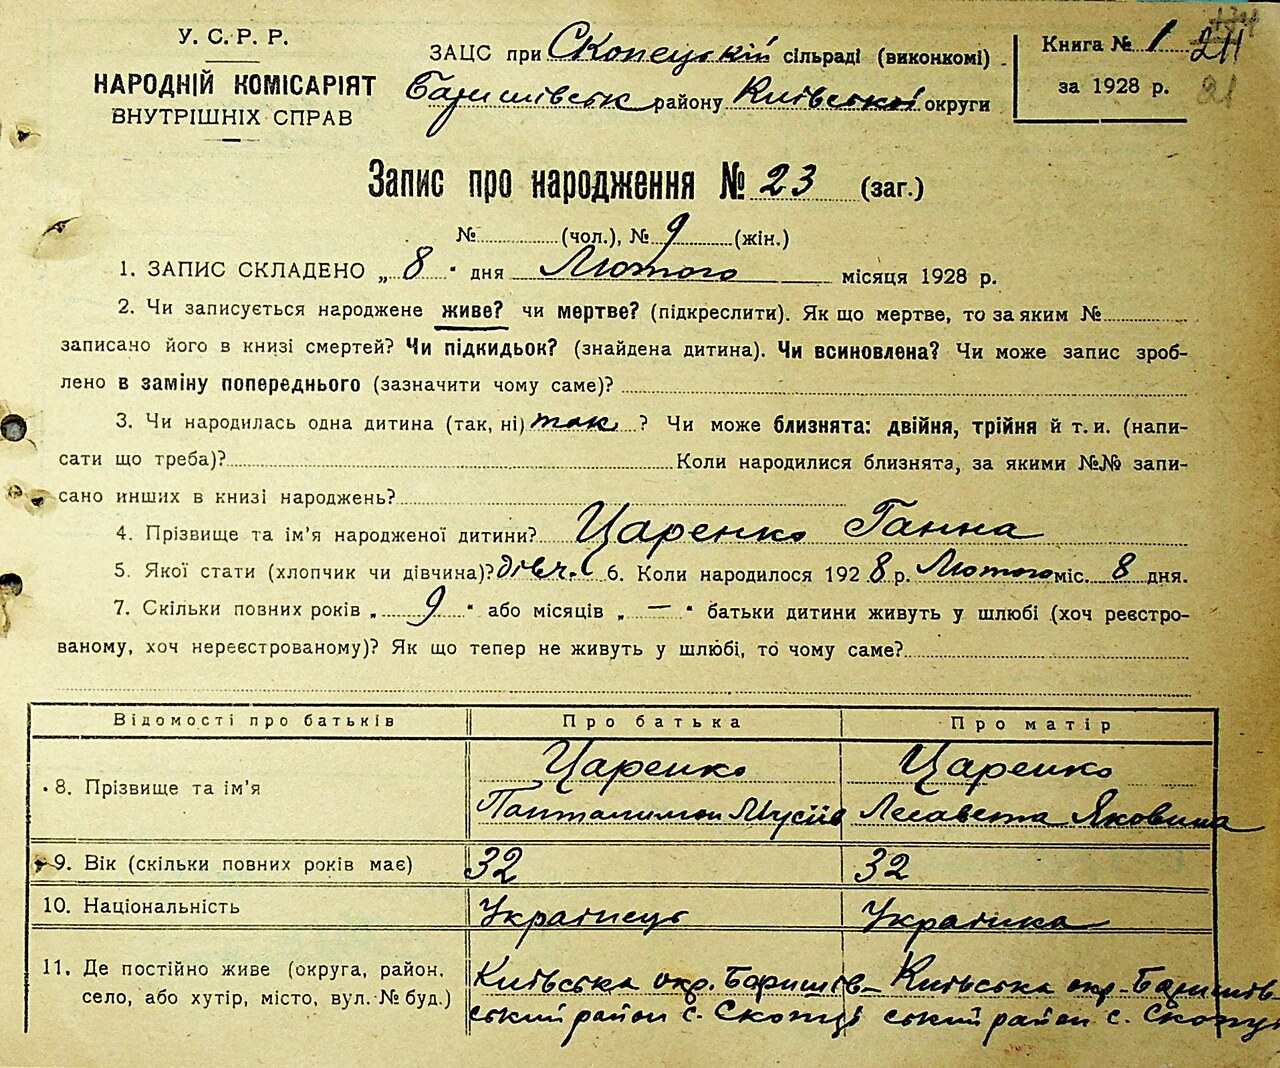 У. С. Р. Р.
НАРОДНІЙ КОМІСАРІЯТ
ВНУТРІШНІХ СПРАВ
ЗАЦС при Скопецькій сільраді (виконкомі)
Баришівськ району Київської округи
Книга № 1
за 1928 р.
21
Запис про народження № 23 (заг.)
№ (чол.), № 9 (жін.)
1. ЗАПИС СКЛАДЕНО „ 8 " дня Лютого місяця 1928 р.
2. Чи записується народжене живе? чи мертве? (підкреслити). Як що мертве, то за яким №
записано його в книзі смертей? Чи підкидьок? (знайдена дитина). Чи всиновлена? Чи може запис зроб-
лено в заміну попереднього (зазначити чому саме)?
3. Чи народилась одна дитина (так, ні) так ? Чи може близнята: двійня, трійня й т. и. (напи-
сати що треба)? Коли народилися близнята, за якими №№ запи-
сано инших в книзі народжень?
4. Прізвище та ім'я народженої дитини? Царенко Ганна
5. Якої стати (хлопчик чи дівчина)? дівч. 6. Коли народилося 192 8 р. Лютого міс. 8 дня.
7. Скільки повних років „ 9 " або місяців „ — " батьки дитини живуть у шлюбі (хоч реєстро-
ваному, хоч нереєстрованому)? Як що тепер не живуть у шлюбі, то чому саме?
Відомості про батьків Про батька Про матір
8. Прізвище та ім'я Царенко Царенко
Панталимон Мусіїв Лесавета Яковина
9. Вік (скільки повних років має) 32 32
10. Національність Українець Українка
11. Де постійно живе (округа, район, Київська окр. Баришів- Київська окр. Баришів-
село, або хутір, місто, вул. № буд.) ський район с. Скопці ський район с. Скопці